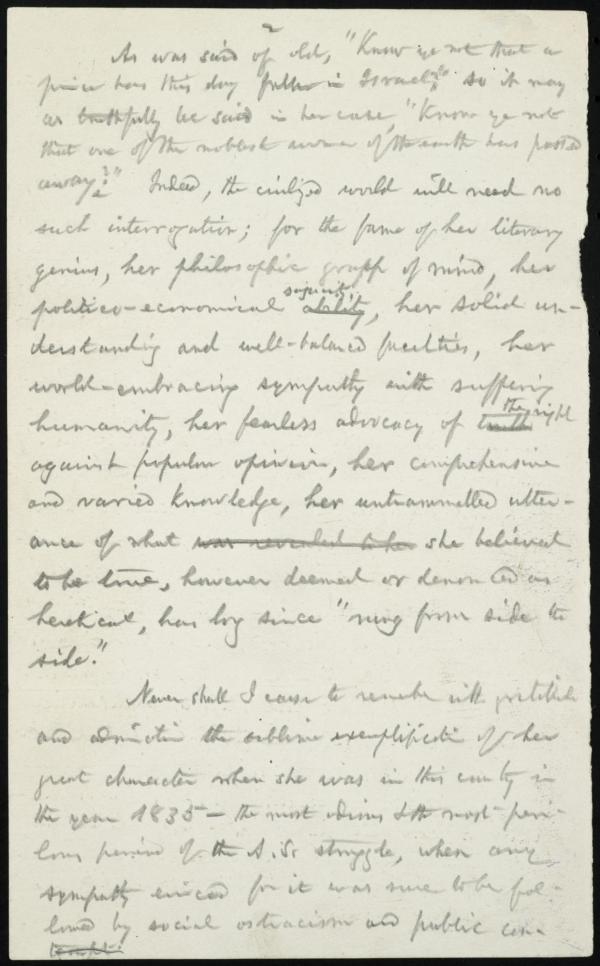 2
As was said of old, "Know ye not that a
prince has this day fallen in Israel?" so it may
as truthfully be said in her case, "Know ye not
that one of the noblest women of the earth has passed
away?" Indeed, the civilized world will need no
such interrogation; for the fame of her literary
genius, her philosophic grasp of mind, her
politico-economical ability sagacity, her solid un-
derstanding and well-balanced faculties, her
world-embracing sympathy with suffering
humanity, her fearless advocacy of truth the right
against popular opinion, her comprehensive
and varied knowledge, her untrammelled utter-
ance of what was revealed to her she believed
to be true, however deemed or denounced as
heretical, has long since "rung from side to
side."
Never shall I cease to remember with gratitude
and admiration the sublime exemplification of her
great character when she was in this country in
the year 1835 — the most odious & the most peri-
lous period of the A. S. struggle, when any
sympathy evinced for it was sure to be fol-
lowed by social ostracism and public con-
tempt.